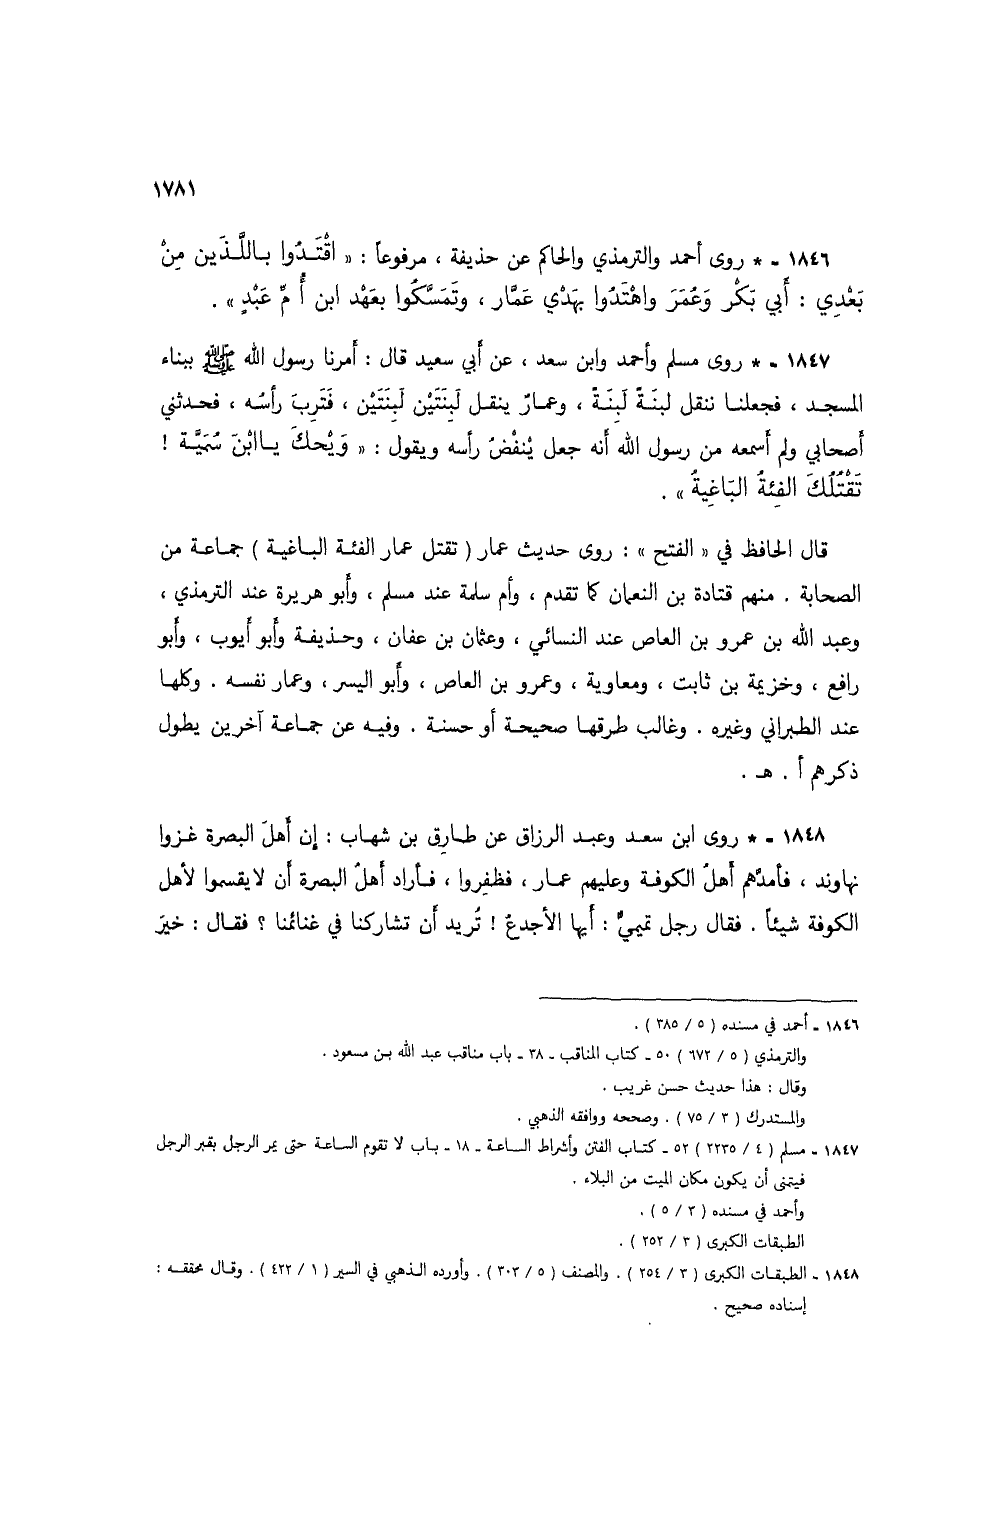 ١٧٨١
١٨٤٦ - * روى أحمد والترمذي والحاكم عن حذيفة ، مرفوعاً : « اقْتَدُوا بِاللَّذَين مِنْ
بَعْدِي : أَبي بَكْر وَعُمَرَ واهْتَدُوا بهَدْي عَمَّار ، وتَمَسَّكُوا بعَهْد ابن أُ مِّ عَبْدٍ » .
١٨٤٧ - * روى مسلم وأحمد وابن سعد ، عن أَبي سعيد قال : أَمرنا رسول الله ﷺ ببناء
المسجد ، فجعلنا ننقل لبنَةً لَبِنَةً ، وعمارٌ ينقل لَبِنَتَيْن لَبِنَتَيْن ، فَتَرِبَ رأسُه ، فحدثني
أَصحابي ولم أَسمعه من رسول الله أَنه جعل يْنفْضُ رأسه ويقول : « وَيْحكَ يـاابْنَ سُمَيَّة !
تَقْتُلُكَ الفِئةُ البَاغِيةُ » .
قال الحافظ في « الفتح » : روى حديث عمار ( تقتل عمار الفئة الباغية ) جماعة من
الصحابة . منهم قتادة بن النعمان كما تقدم ، وأم سلمة عند مسلم ، وأَبو هريرة عند الترمذي ،
وعبد الله بن عمرو بن العاص عند النسائي ، وعثمان بن عفان ، وحذيفة وأَبو أَيوب ، وأَبو
رافع ، وخزيمة بن ثابت ، ومعاوية ، وعمرو بن العاص ، وأَبو اليسر ، وعمار نفسه . وكلها
عند الطبراني وغيره . وغالب طرقها صحيحة أو حسنة . وفيه عن جماعة آخرين يطول
ذكرهم أ . هـ .
١٨٤٨ - * روى ابن سعد وعبد الرزاق عن طارق بن شهاب : إن أَهلَ البصرة غزوا
نهاوند ، فأمدَّهم أَهلُ الكوفة وعليهم عمار ، فظفِروا ، فأراد أَهلُ البصرة أَن لا يقسموا لأهل
الكوفة شيئاً . فقال رجل تميميٌّ : أَيها الأجدعُ ! تُريد أَن تشاركنا في غنائمنا ؟ فقال : خيرَ
١٨٤٦ - أحمد في مسنده ( ٥ / ٣٨٥ ) .
والترمذي ( ٥ / ٦٧٢ ) ٥٠ - كتاب المناقب - ٣٨ - باب مناقب عبد الله بن مسعود .
وقال : هذا حديث حسن غريب .
والمستدرك ( ٣ / ٧٥ ) . وصححه ووافقه الذهبي .
١٨٤٧ - مسلم ( ٤ / ٢٢٣٥ ) ٥٢ - كتاب الفتن وأشراط الساعة - ١٨ - باب لا تقوم الساعة حتى يمر الرجل بقبر الرجل
فيتمنى أن يكون مكان الميت من البلاء .
وأحمد في مسنده ( ٣ / ٥ ) .
الطبقات الكبرى ( ٣ / ٢٥٢ ) .
١٨٤٨ - الطبقات الكبرى ( ٣ / ٢٥٤ ) . والمصنف ( ٥ / ٣٠٣ ) . وأورده الذهبي في السير ( ١ / ٤٢٢ ) . وقال محققه :
إسناده صحيح .